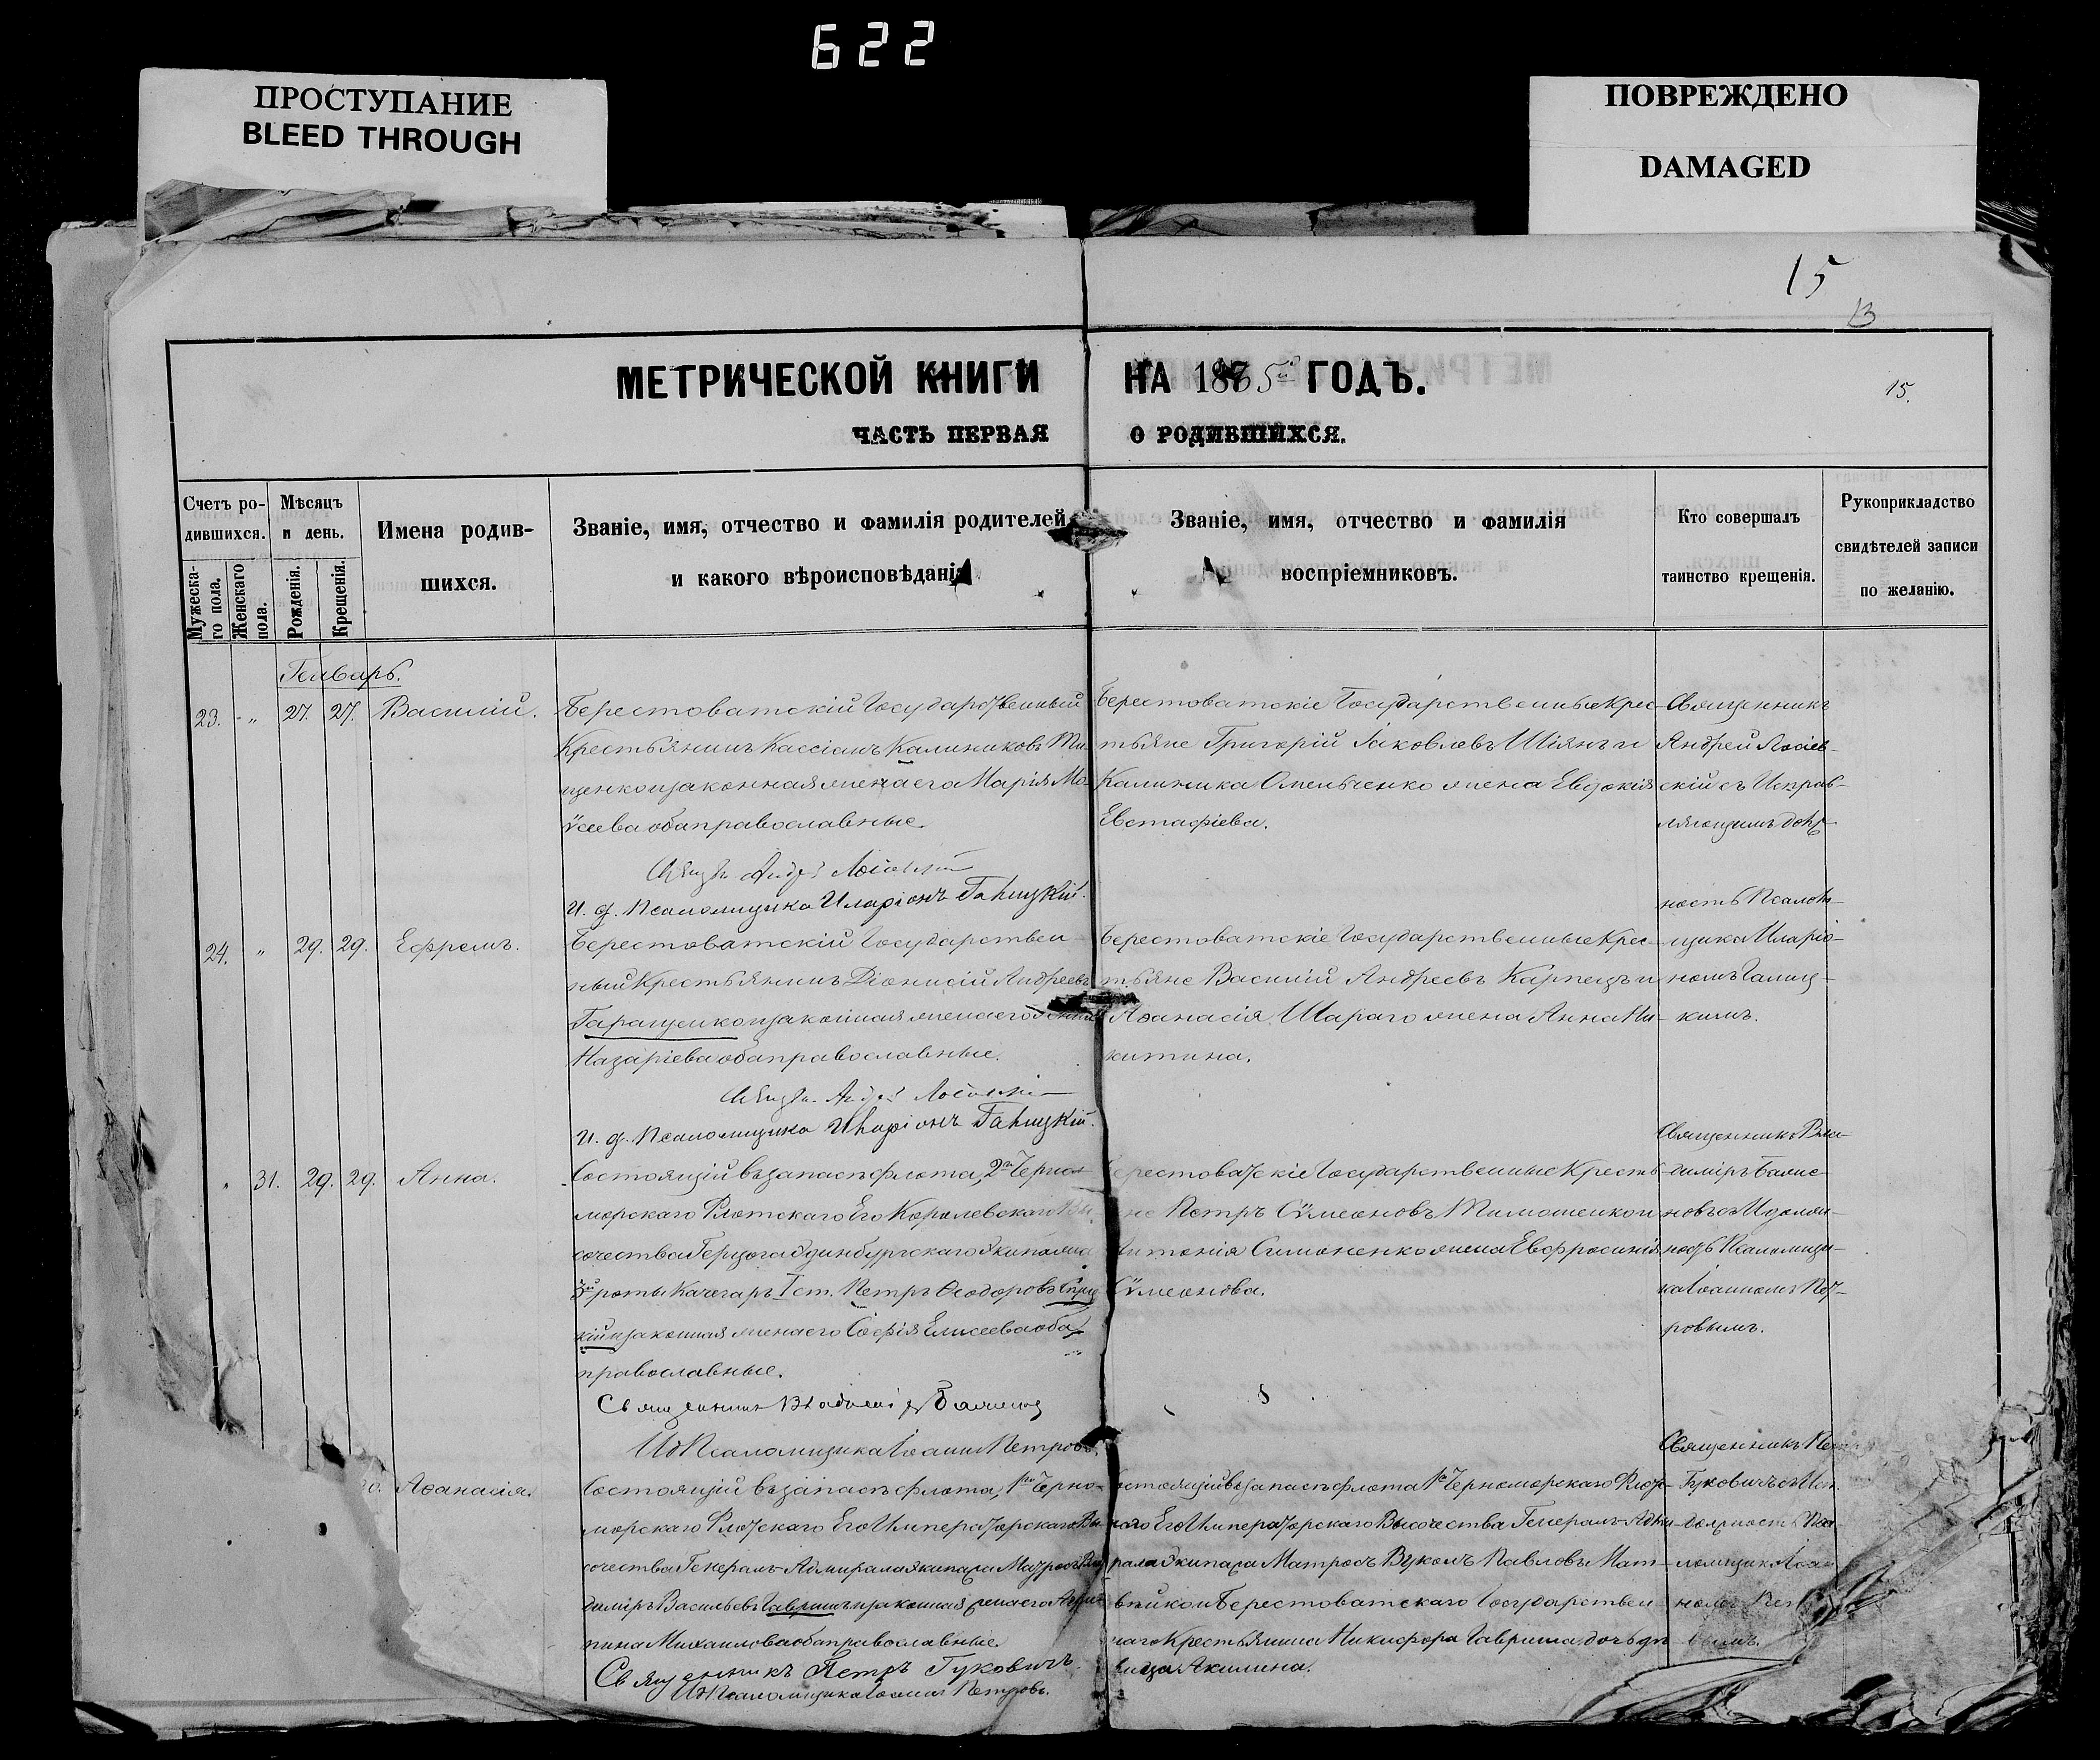 622
ПРОСТУПАНИЕ
BLEED THROUGH
ПОВРЕЖДЕНО
DAMAGED
15
13
МЕТРИЧЕСКОЙ КНИГИ НА 1885й ГОДЪ.
15.
ЧАСТЬ ПЕРВАЯ О РОДИВШИХСЯ.
Счетъ ро-
дившихся.
Мужеска-
го пола.
Женскаго
пола.
Мѣсяцъ
и день.
Рожденія.
Крещенія.
Имена родив-
шихся.
Званіе, имя, отчество и фамилія родителей,
и какого вѣроисповѣданія.
Званіе, имя, отчество и фамилія
воспріемниковъ.
Кто совершалъ
таинство крещенія.
Рукоприкладство
свидѣтелей записи
по желанію.
Генварь.
23. " 27. 27. Василій.
Берестоватскій Государственный
Крестьянинъ Кассіанъ Калиниковъ Ти-
щенко и законная жена его Марія Мо-
ѵсеева оба православные.
И. д. Псаломщика Иларіонъ Галицкій.
Берестоватскіе Государственные Крес-
тьяне Григорій Іаковлевъ Шіянъ и
Калиника Омельченко жена Евдокія
Евстафіева.
Священникъ
Андрей Лосіев-
скій съ Исправ-
ляющимъ долж-
ность Псалом-
щика Иларіо-
номъ Галиц-
кимъ.
24. " 29. 29. Ефремъ.
Берестоватскій Государствен-
ный Крестьянинъ Діонисій Андреевъ
Гаращенко и законная жена его
Назаріева оба православные.
И. д. Псаломщика Иларіонъ Галицкій.
Берестоватскіе Государственные Крес-
тьяне Василій Андреевъ Карпецъ и
Аѳанасія Шараго жена Анна Ни-
китина.
" 31. 29. 29. Анна.
Состоящій въ запасѣ флота, 2го Черно-
морскаго Флотскаго Его Королевскаго Вы-
сочества Герцога Эдинбургскаго Экипажа
3й роты Качегаръ I ст. Петръ Ѳеодоровъ
кій и законная жена его Софія Елисеева оба
православные.
Священникъ Владиміръ
ИД Псаломщика Іоаннъ Петровъ.
Берестоватскіе Государственные Кресть-
яне Петръ Сѵмеоновъ Тимошенко и
Антонія Симоненко жена Евфросинія
Сѵмеонова.
Священникъ Вла-
диміръ
новъ съ И. должн-
ность Псаломщи-
ка Іоанномъ Пет-
ровымъ.
Аѳанасія.
Состоящій въ запасѣ флота, 1го Черно-
морскаго Флотскаго Его Императорскаго Вы-
сочества Генералъ-Адмирала Экипажа Матросъ Вла-
диміръ Васильевъ Гавришъ и законная жена его Агрип-
пина Михаилова оба православные.
Священникъ Петръ Гуковичъ.
ИД Псаломщика Іоаннъ Петровъ.
Состоящій въ запасѣ флота 1го Черноморскаго Флот-
скаго Его Императорскаго Высочества Генералъ-Адми-
рала Экипажа Матросъ Вуколъ Павловъ Мат-
вѣйко и Берестоватскаго Государствен-
наго Крестьянина Никифора Гавриша дочь дѣ-
вица Акилина.
Священникъ Петръ
Гуковичъ съ Исп.
должность Пса-
ломщика Іоан-
номъ Петро-
вымъ.